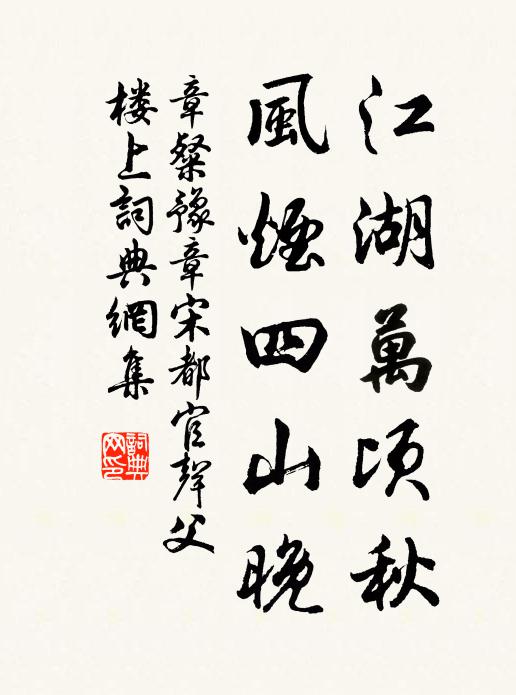 江湖萬頃秋
風煙四山晚
章粲豫章宋都官聲父
楼上詞典網集
詞典网印